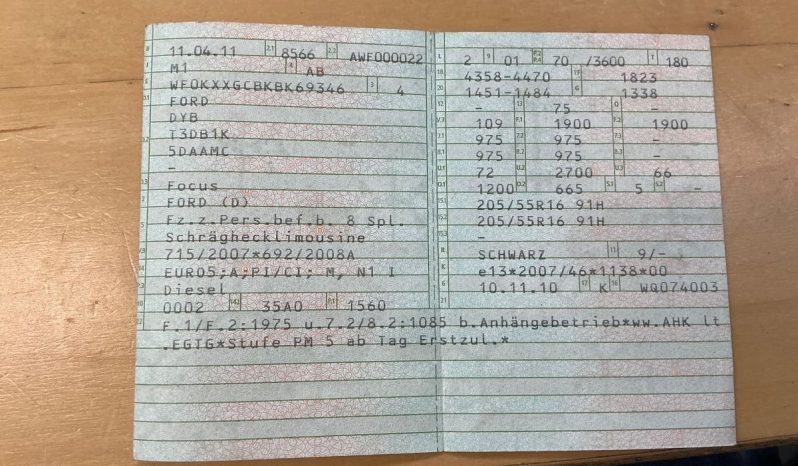 B 11.04.11 2.1 8566 2.2 AWF000022
J M1 4 AB
E WF0KXXGCBKBK69346 3 4
D.1 FORD
DYB
D.2 T3DB1K
5DAAMC
-
D.3 Focus
2 FORD (D)
5 Fz.z.Pers.bef.b. 8 Spl.
Schräghecklimousine
V.9 715/2007*692/2008A
14 EURO5;A;PI/CI; M, N1 I
P.3 Diesel
10 0002 14.1 35A0 P.1 1560
L 2 9 01 P.2 P.4 70 /3600 T 180
18 4358-4470 19 1823
20 1451-1484 G 1338
12 - 13 75 Q -
V.7 109 F.1 1900 F.2 1900
7.1 975 7.2 975 7.3 -
8.1 975 8.2 975 8.3 -
U.1 72 U.2 2700 U.3 66
O.1 1200 O.2 665 S.1 5 S.2 -
15.1 205/55R16 91H
15.2 205/55R16 91H
15.3 -
R SCHWARZ 11 9/-
K e13*2007/46*1138*00
6 10.11.10 17 K 16 WQ074003
21
22 F.1/F.2:1975 u.7.2/8.2:1085 b.Anhängebetrieb*ww.AHK lt
.EGTG*Stufe PM 5 ab Tag Erstzul.*